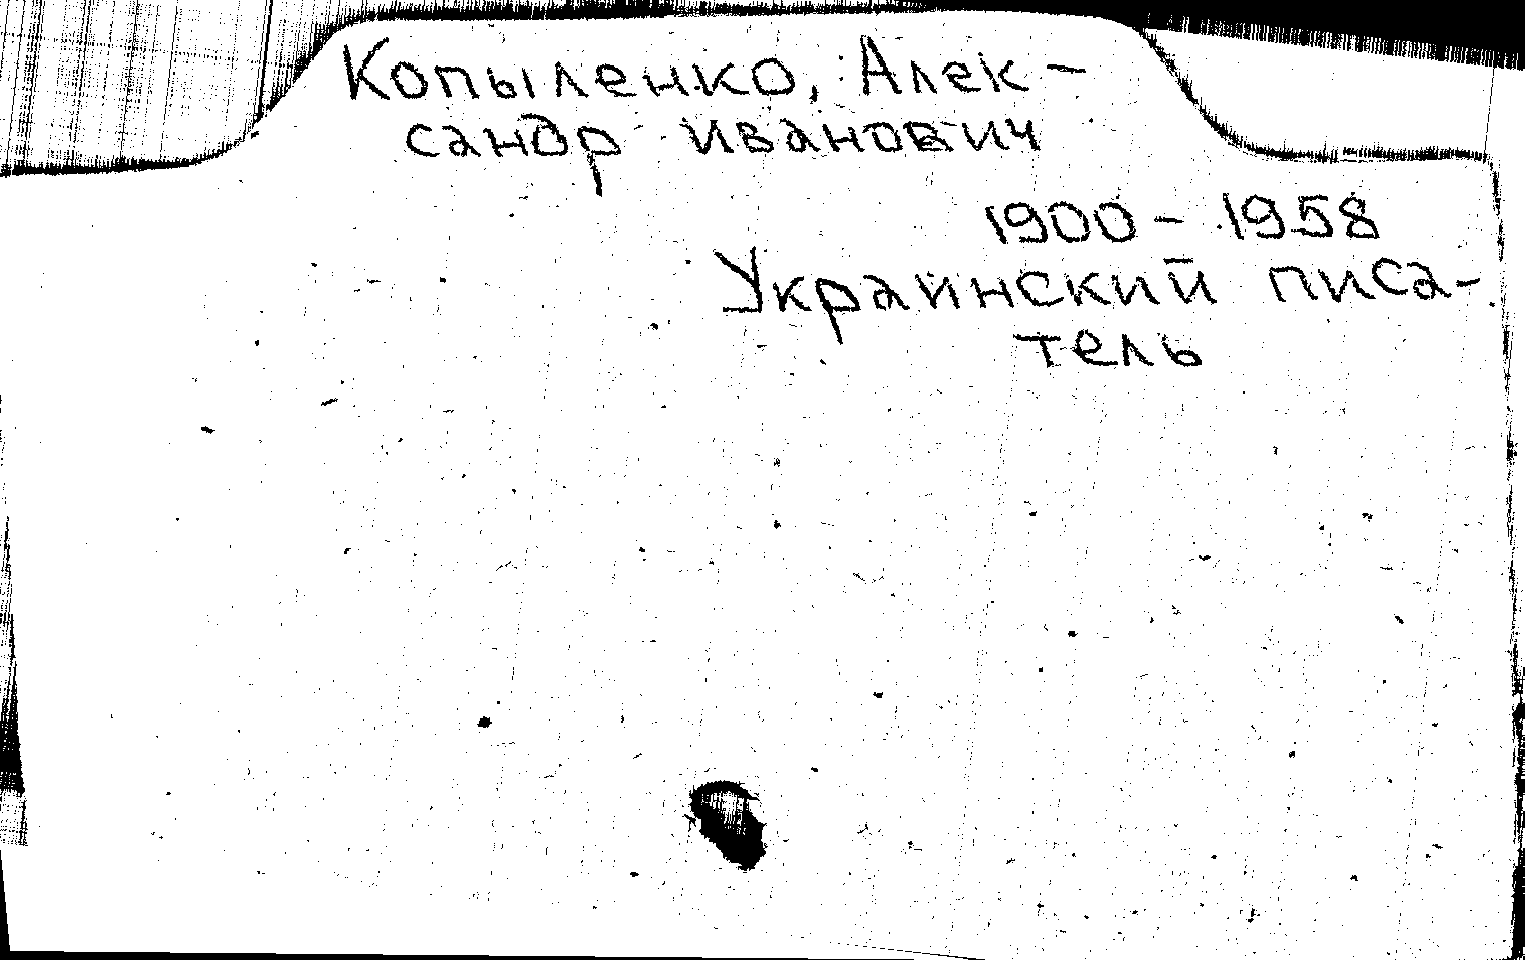 Копыленко, Алек-
сандр Иванович
1900 - 1958
Украинский писа-
тель